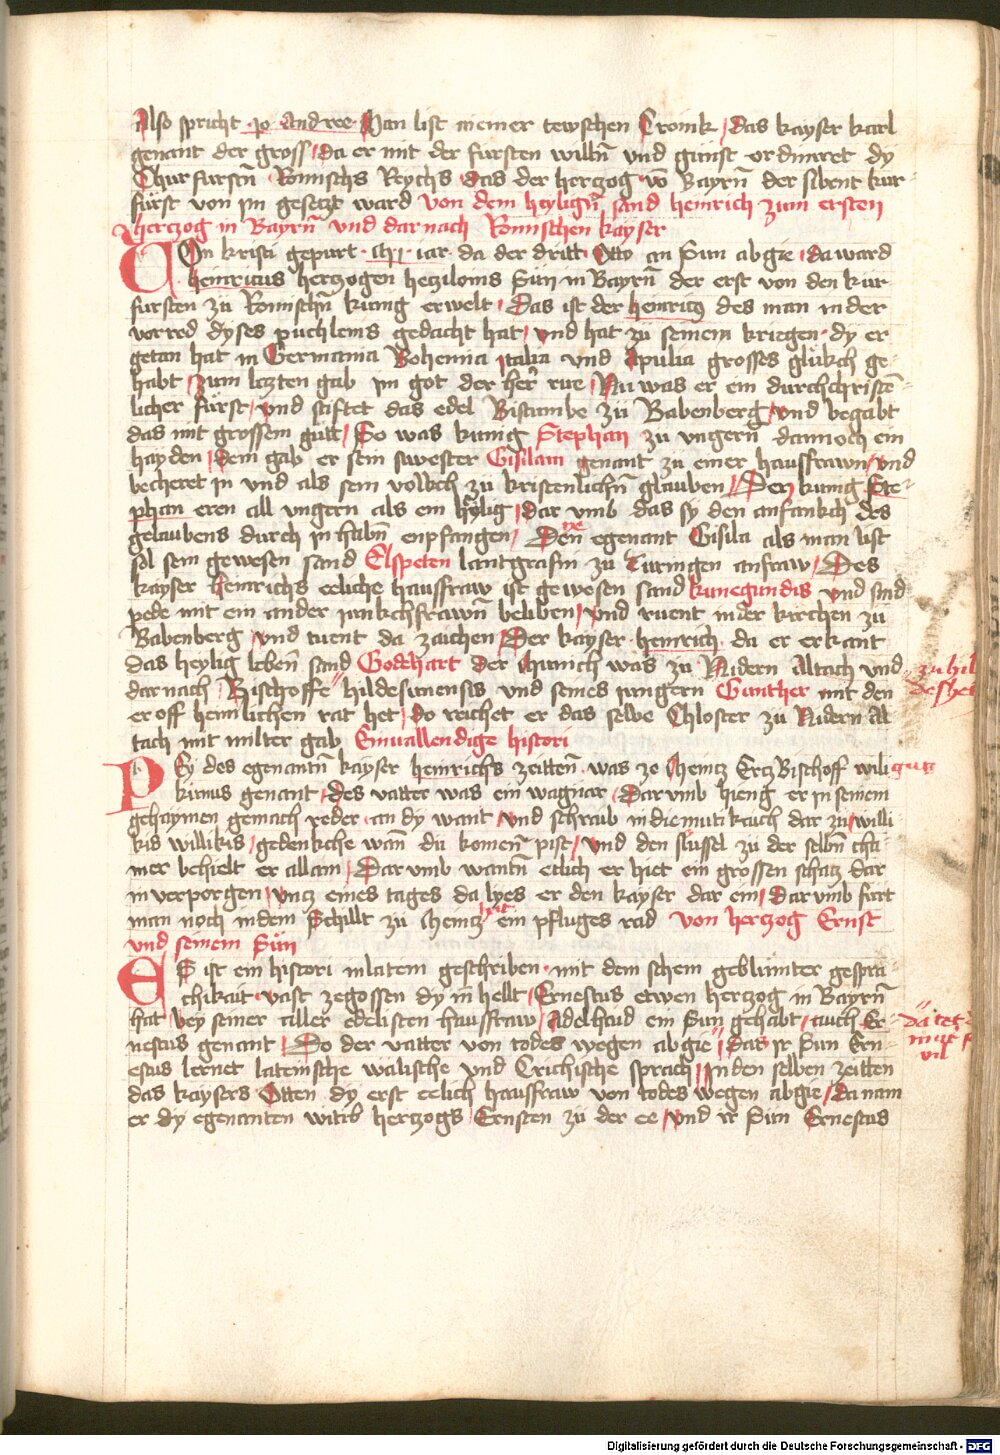 Also spricht Jo Andree Man list in einer tewschen Cronik das kayser karl
genant der gross da er mit der fursten willn̄ und gunst ordiniret dy
Churfurstn̄ Romischs Reychs das der hertzog vō Bayrn̄ der sibent kur
fürst von jm gesetzt ward von dem heylign̄ sand heinrich zum ersten
hertzog in Bayrn̄ und darnach Romischen kayser
Von kristi gepurt iar da der dritt Otto an Sun abgie da ward
heinricus hertzogen heziloms Sun in Bayrn̄ der erst von den kur
fursten zu Romischn̄ kunig erwelt Das ist der heinricus des man in der
vorred dyses puchleins gedacht hat und hat zu seinem kriegen dy er
getan hat in Germania Bohemia Italia und Apulia grosses glükch ge
habt zum letzten gab jm got der her rue Nu was er ein durchchristen
licher fürst und stiftet das edel Bistumbe zu Babenberg und begabt
das mit grossem gutt So was kunig Stephan zu ungern dannoch ein
hayden dem gab er sein swester Gisilam genant zu einer hausfrawn und
becheret jn und als sein volkch zu kristenlichn̄ glauben Den kunig Ste
phan eren all ungern als ein heylig dar umb das sy den anfankch des
gelaubens durch jn habn̄ enpfangen Der egenant Gisila als man list
sol sein gewesen sand Elspeten lantgrafin zu Turingen anfraw Des
kayser heinrichs eeliche hausfraw ist gewesen sand kunegundis und sind
pede mit ein ander junkchfrawn̄ beliben und ruent in der kirchen zu
Babenberg und tuent da zaichen Der kayser heinrich da er erkant
das heylig lebn̄ sand Gotthart der munich was zu Nidern Altach und
darnach Bischoffe hildesimensis und seines jungern Gunther mit den
er oft heimlichen rat het do reichet er das selbe Chloster zu Nidern Al
tach mit milter gab Ein vallendige histori
zu hil
desheim
Pey des egenantn̄ kayser heinrichs zeittn̄ was ze Mentz ErtzBischoff wili
kinus genant des vatter was ein wagnar Dar umb hieng er in seinem
gehaymen gemach reder an dy want und schraib in diemutikaich dar zu willi
kis willikis gedenkche wan̄ du komen̄ pist und den slussel zu der selbn̄ cha
mer behielt er allain Dar umb wantn̄ etlich er hiet ein grossen schatz dar
in verporgen untz eines tages da lyes er den kayser dar ein Dar umb furt
man noch in dem Schillt zu Mentz ein pfluges rad Von hertzog Ernst
und seinem Sun
Es ist ein histori in latein geschriben mit dem schein geblumter gespra
chikait vast zegossen dy in̄ hellt Ernestus etwen hertzog in Bayrn̄
hat bey seiner aller edelisten hausfraw Adelhaid ein Sun gehabt auch Er
nestus genant Do der vatter von todes wegen abgie Dar jr Sun Ern
estus lernet lateinsche wälische und Crichische sprach In den selben zeitten
das kaysers Otten dy erst eelich hausfraw von todes wegen abgie da nam
er dy egenanten witib hertzogs Ernsten zu der ee und ir Sun Ernestus
da tet
vil